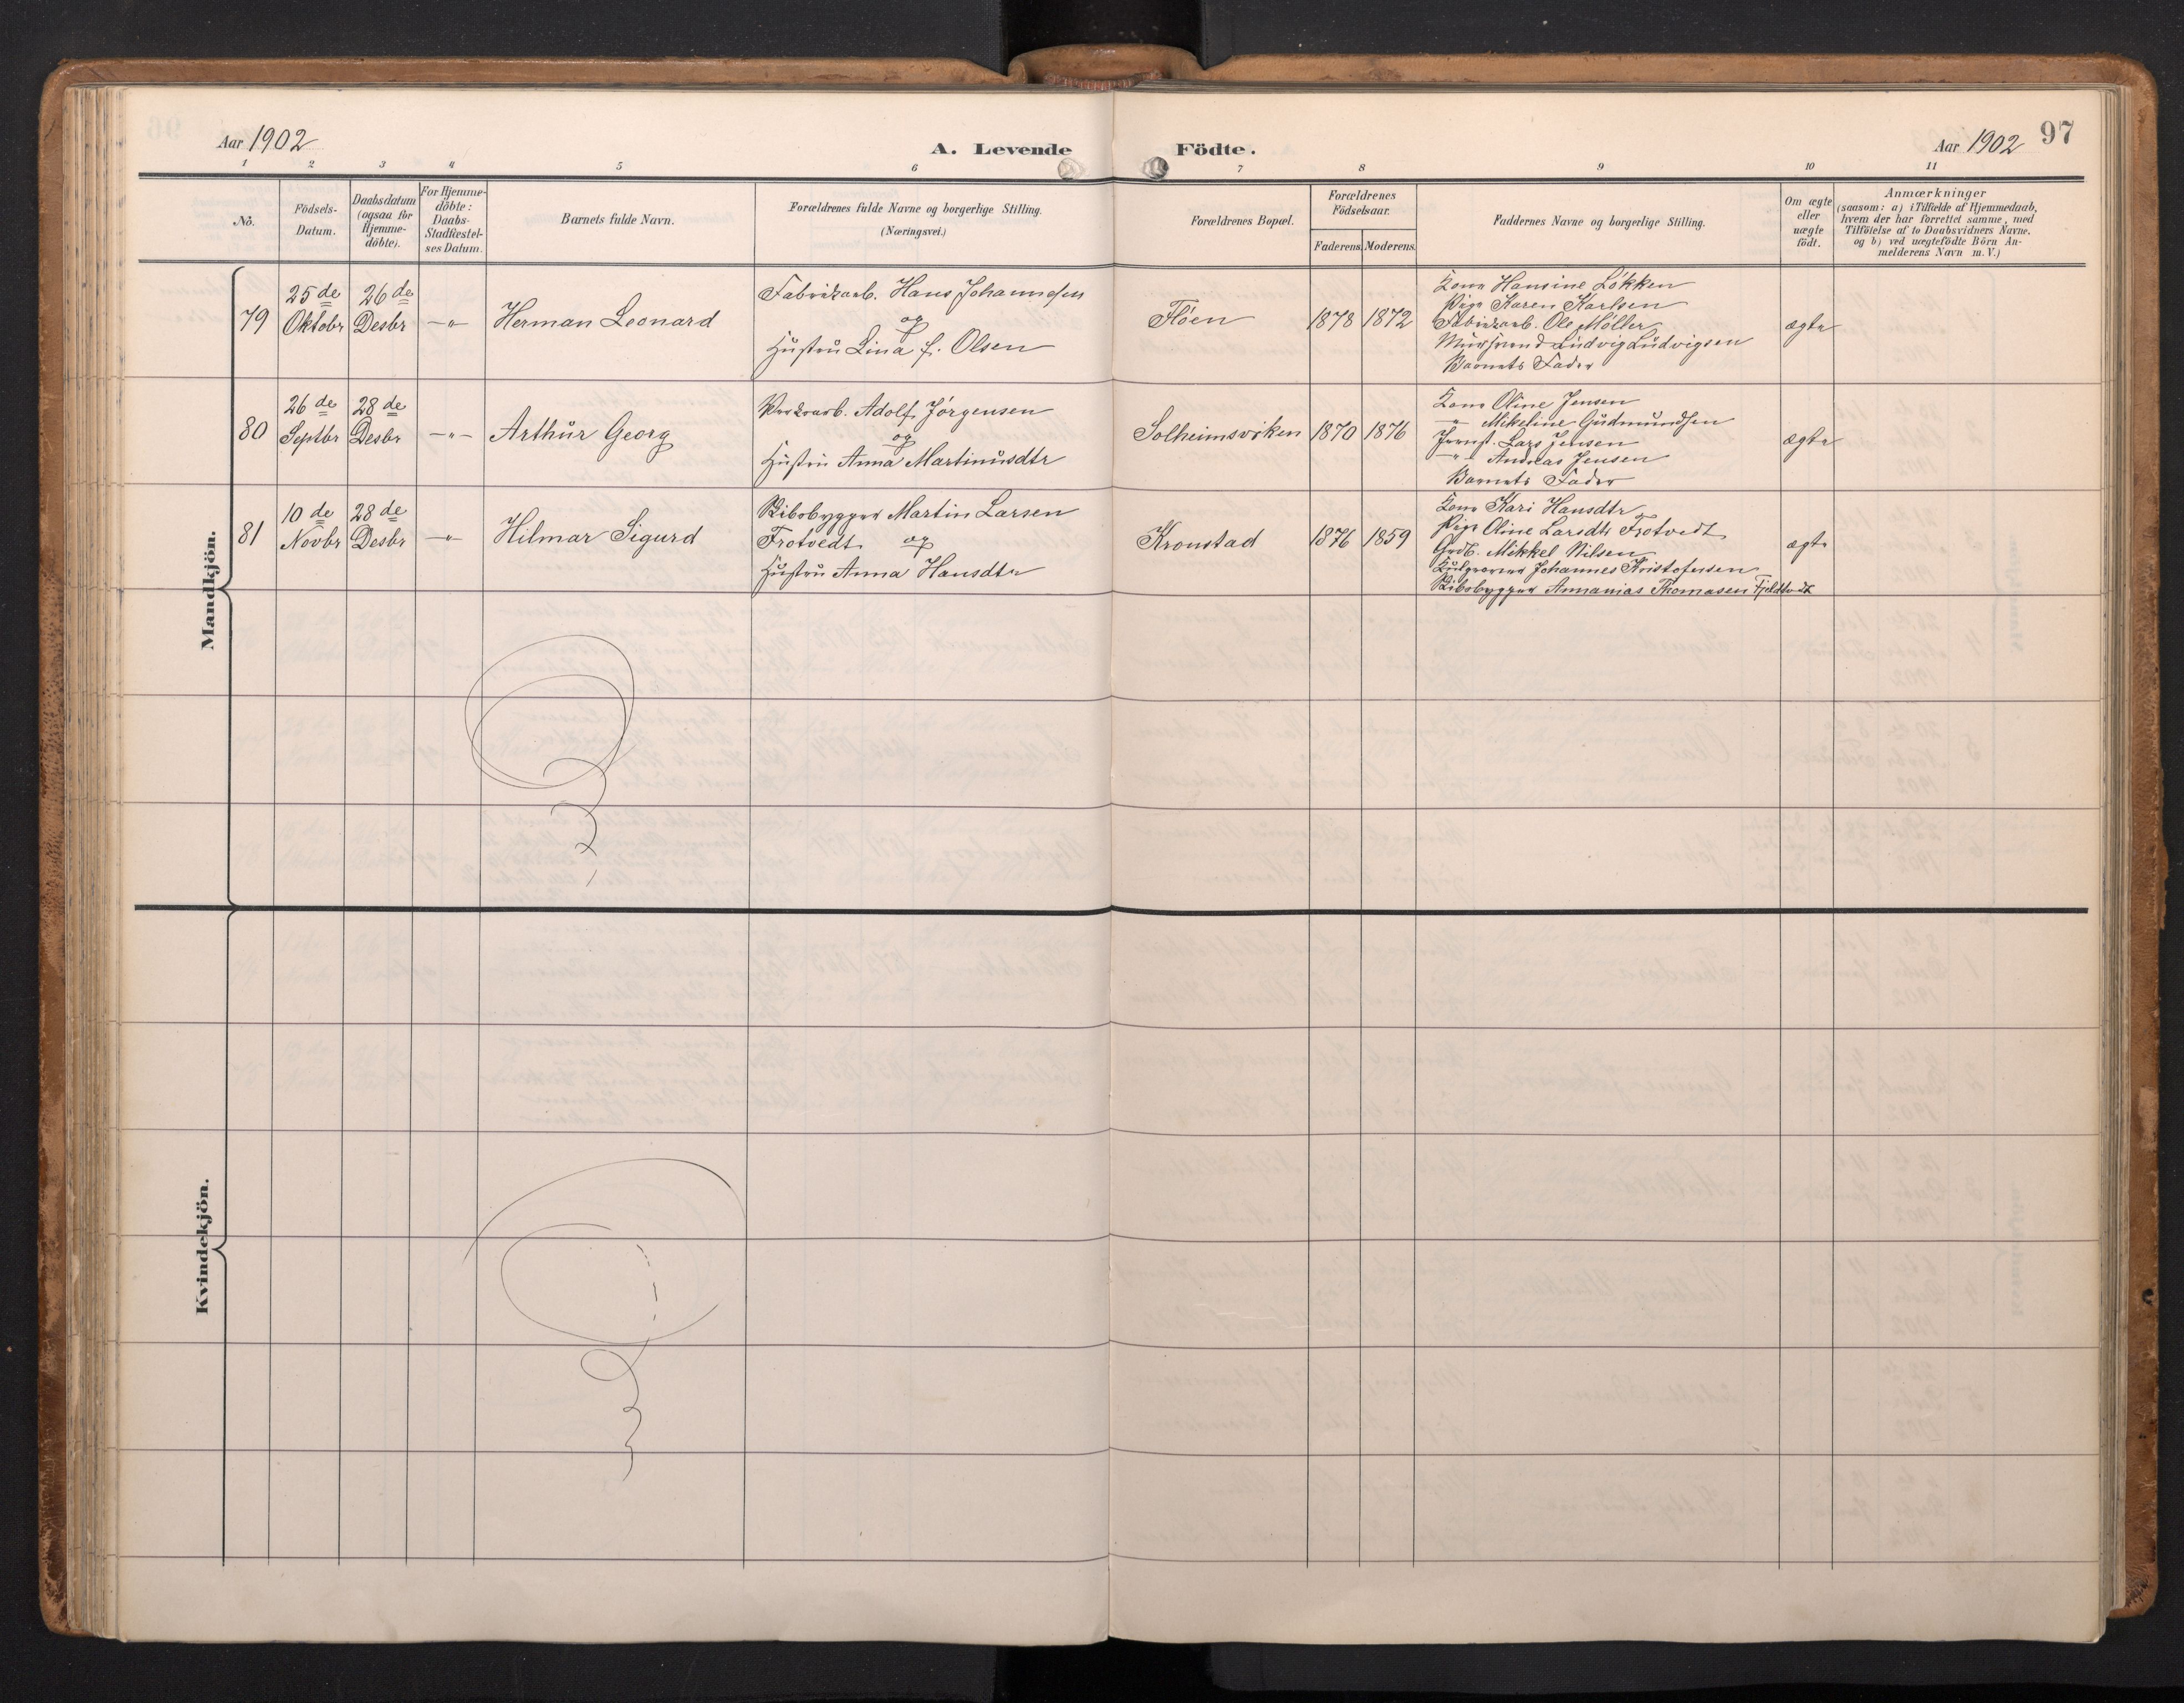 Aar 1902
A. Levende Födte.
Aar 1902 97
1 2 3 4 5 6 7 8 9 10 11
No.
Födsels-
Datum.
Daabsdatum
(ogsaa for
Hjemme-
döbte).
For Hjemme-
döbte:
Daabs-
Stadfæstel-
ses Datum.
Barnets fulde Navn.
Forældrenes fulde Navne og borgerlige Stilling.
(Næringsvei.)
Forældrenes Bopæl.
Forældrenes
Födselsaar.
Faderens. Moderens.
Faddernes Navne og borgerlige Stilling.
Om ægte
eller
uægte
födt.
Anmærkninger
(saasom: a) i Tilfælde af Hjemmedaab,
hvem der har forrettet samme, med
Tilföielse af to Daabsvidners Navne,
og b) ved uægtefödte Börn An-
melderens Navn m. V.)
Mandkjön.
79
25 de
Oktobr
26 de
Desbr
-"-
Herman Leonard
Fabrikarb. Hans Johannessen
og
Hustru Lina f. Olsen
Flöen
1878 1872
Kone Hansine Løkken
Pige Karen Karlsen
Fabrikarb. Ole Møller
Mursvend Ludvig Ludvigsen
Barnets Fader
ægte
80
26 de
Septbr
28 de
Desbr
-"-
Arthur Georg
Verksarb. Adolf Jörgensen
og
Hustru Anna Martinusdtr
Solheimsviken
1870 1876
Kone Oline Jensen
-"- Mikeline Gudmundsen
Lars Jensen
-"- Andreas Jensen
Barnets Fader
ægte
81
10 de
Novbr
28 de
Desbr
-"-
Hilmar Sigurd
Skibsbygger Martin Larsen
Trotvedt og
Hustru Anna Hansdtr
Kronstad
1876 1859
Kone Kari Hansdtr
Pige Oline Larsdtr Trotvedt
Grdb. Mikkel Nilsen
Johannes Kristofersen
Skibsbygger Annanias Thomasen Fjeldtvedt
ægte
Kvindekjön.